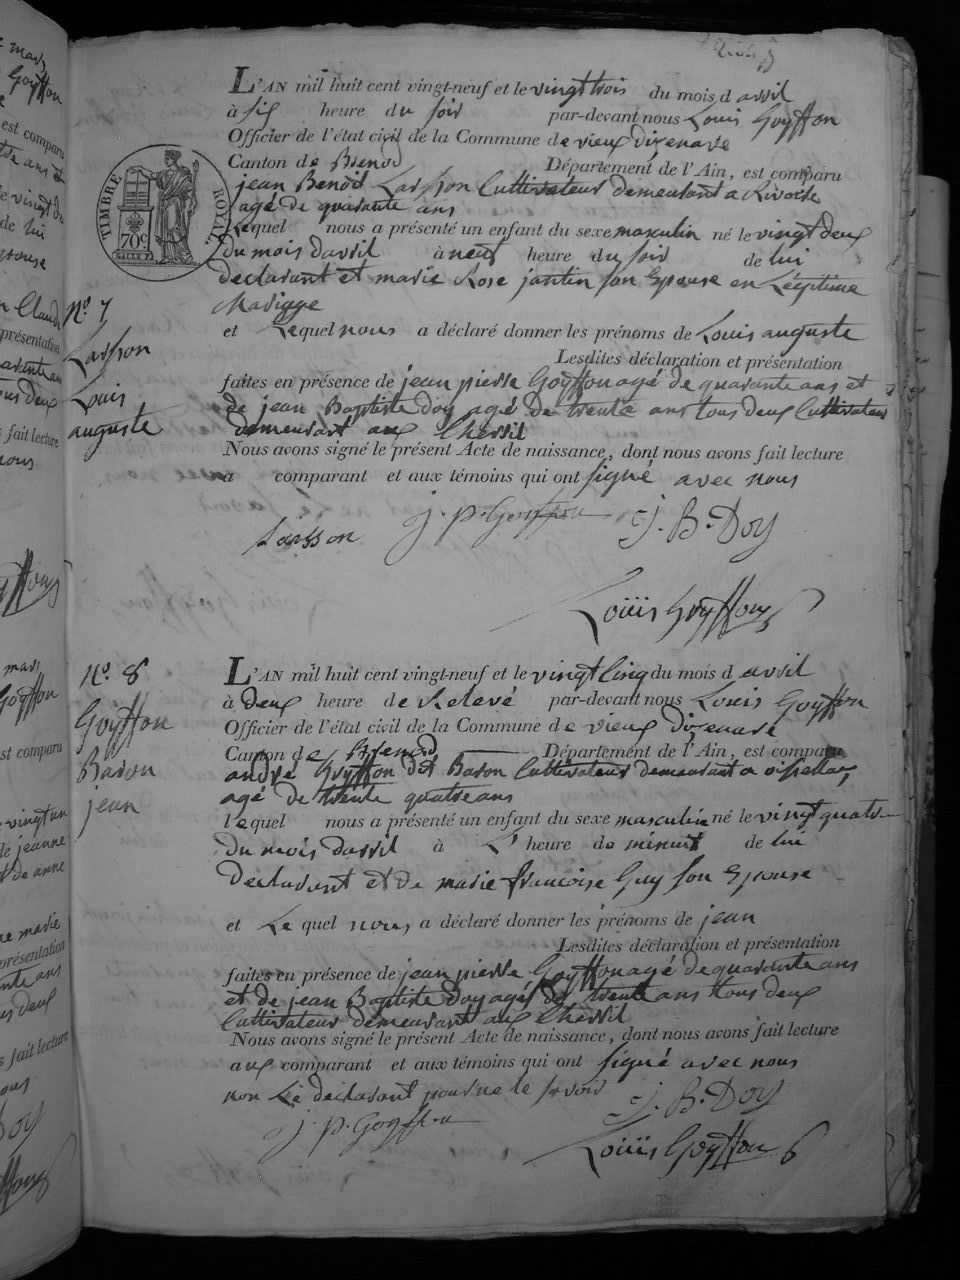 L'AN mil huit cent vingt-neuf et le vingt trois du mois d avril
à six heure du soir par-devant nous Louis Goyffon
Officier de l'état civil de la Commune de vieux dizenave
Canton de Brenod Département de l'Ain, est comparu
jean Benoit Larsson Cultivateur demeurant a Rivoire
agé de quarante ans
Lequel nous a présenté un enfant du sexe masculin né le vingt deux
du mois davril à neuf heure du soir de lui
declarant et marie Rose jantin son Epouse en Légitime
Mariage
et Lequel nous a déclaré donner les prénoms de Louis auguste
Lesdites déclaration et présentation
faites en présence de jean pierre Goyffon agé de quarante ans et
de jean Baptiste Doy agé de trente ans tous deux Cultivateur
demeurant aux Cheril
Nous avons signé le présent Acte de naissance, dont nous avons fait lecture
a comparant et aux témoins qui ont signé avec nous
Larsson J. P. Goyffon J. B. Doy
Louis Goyffon
N° 7
Larsson
Louis
auguste
TIMBRE ROYAL
70c
N° 8
Goyffon
Baron
jean
L'AN mil huit cent vingt-neuf et le vingt Cinq du mois d avril
à deux heure de Relevé par-devant nous Louis Goyffon
Officier de l'état civil de la Commune de vieux dizenave
Canton de Brenod Département de l'Ain, est comparu
andré Goyffon dit Baron Cultivateur demeurant a
agé de trente quatre ans
lequel nous a présenté un enfant du sexe masculin né le vingt quatre
du mois davril à L' heure de minuit de lui
Declarant et de marie francoise Guy son Epouse
et Le quel nous a déclaré donner les prénoms de jean
Lesdites déclaration et présentation
faites en présence de jean pierre Goyffon agé de quarante ans
et de jean Baptiste Doy agé de trente ans tous deux
Cultivateur demeurant aux Cheril
Nous avons signé le présent Acte de naissance, dont nous avons fait lecture
aux comparant et aux témoins qui ont signé avec nous
non Le déclarant pour ne le savoir
J. P. Goyffon J. B. Doy
Louis Goyffon